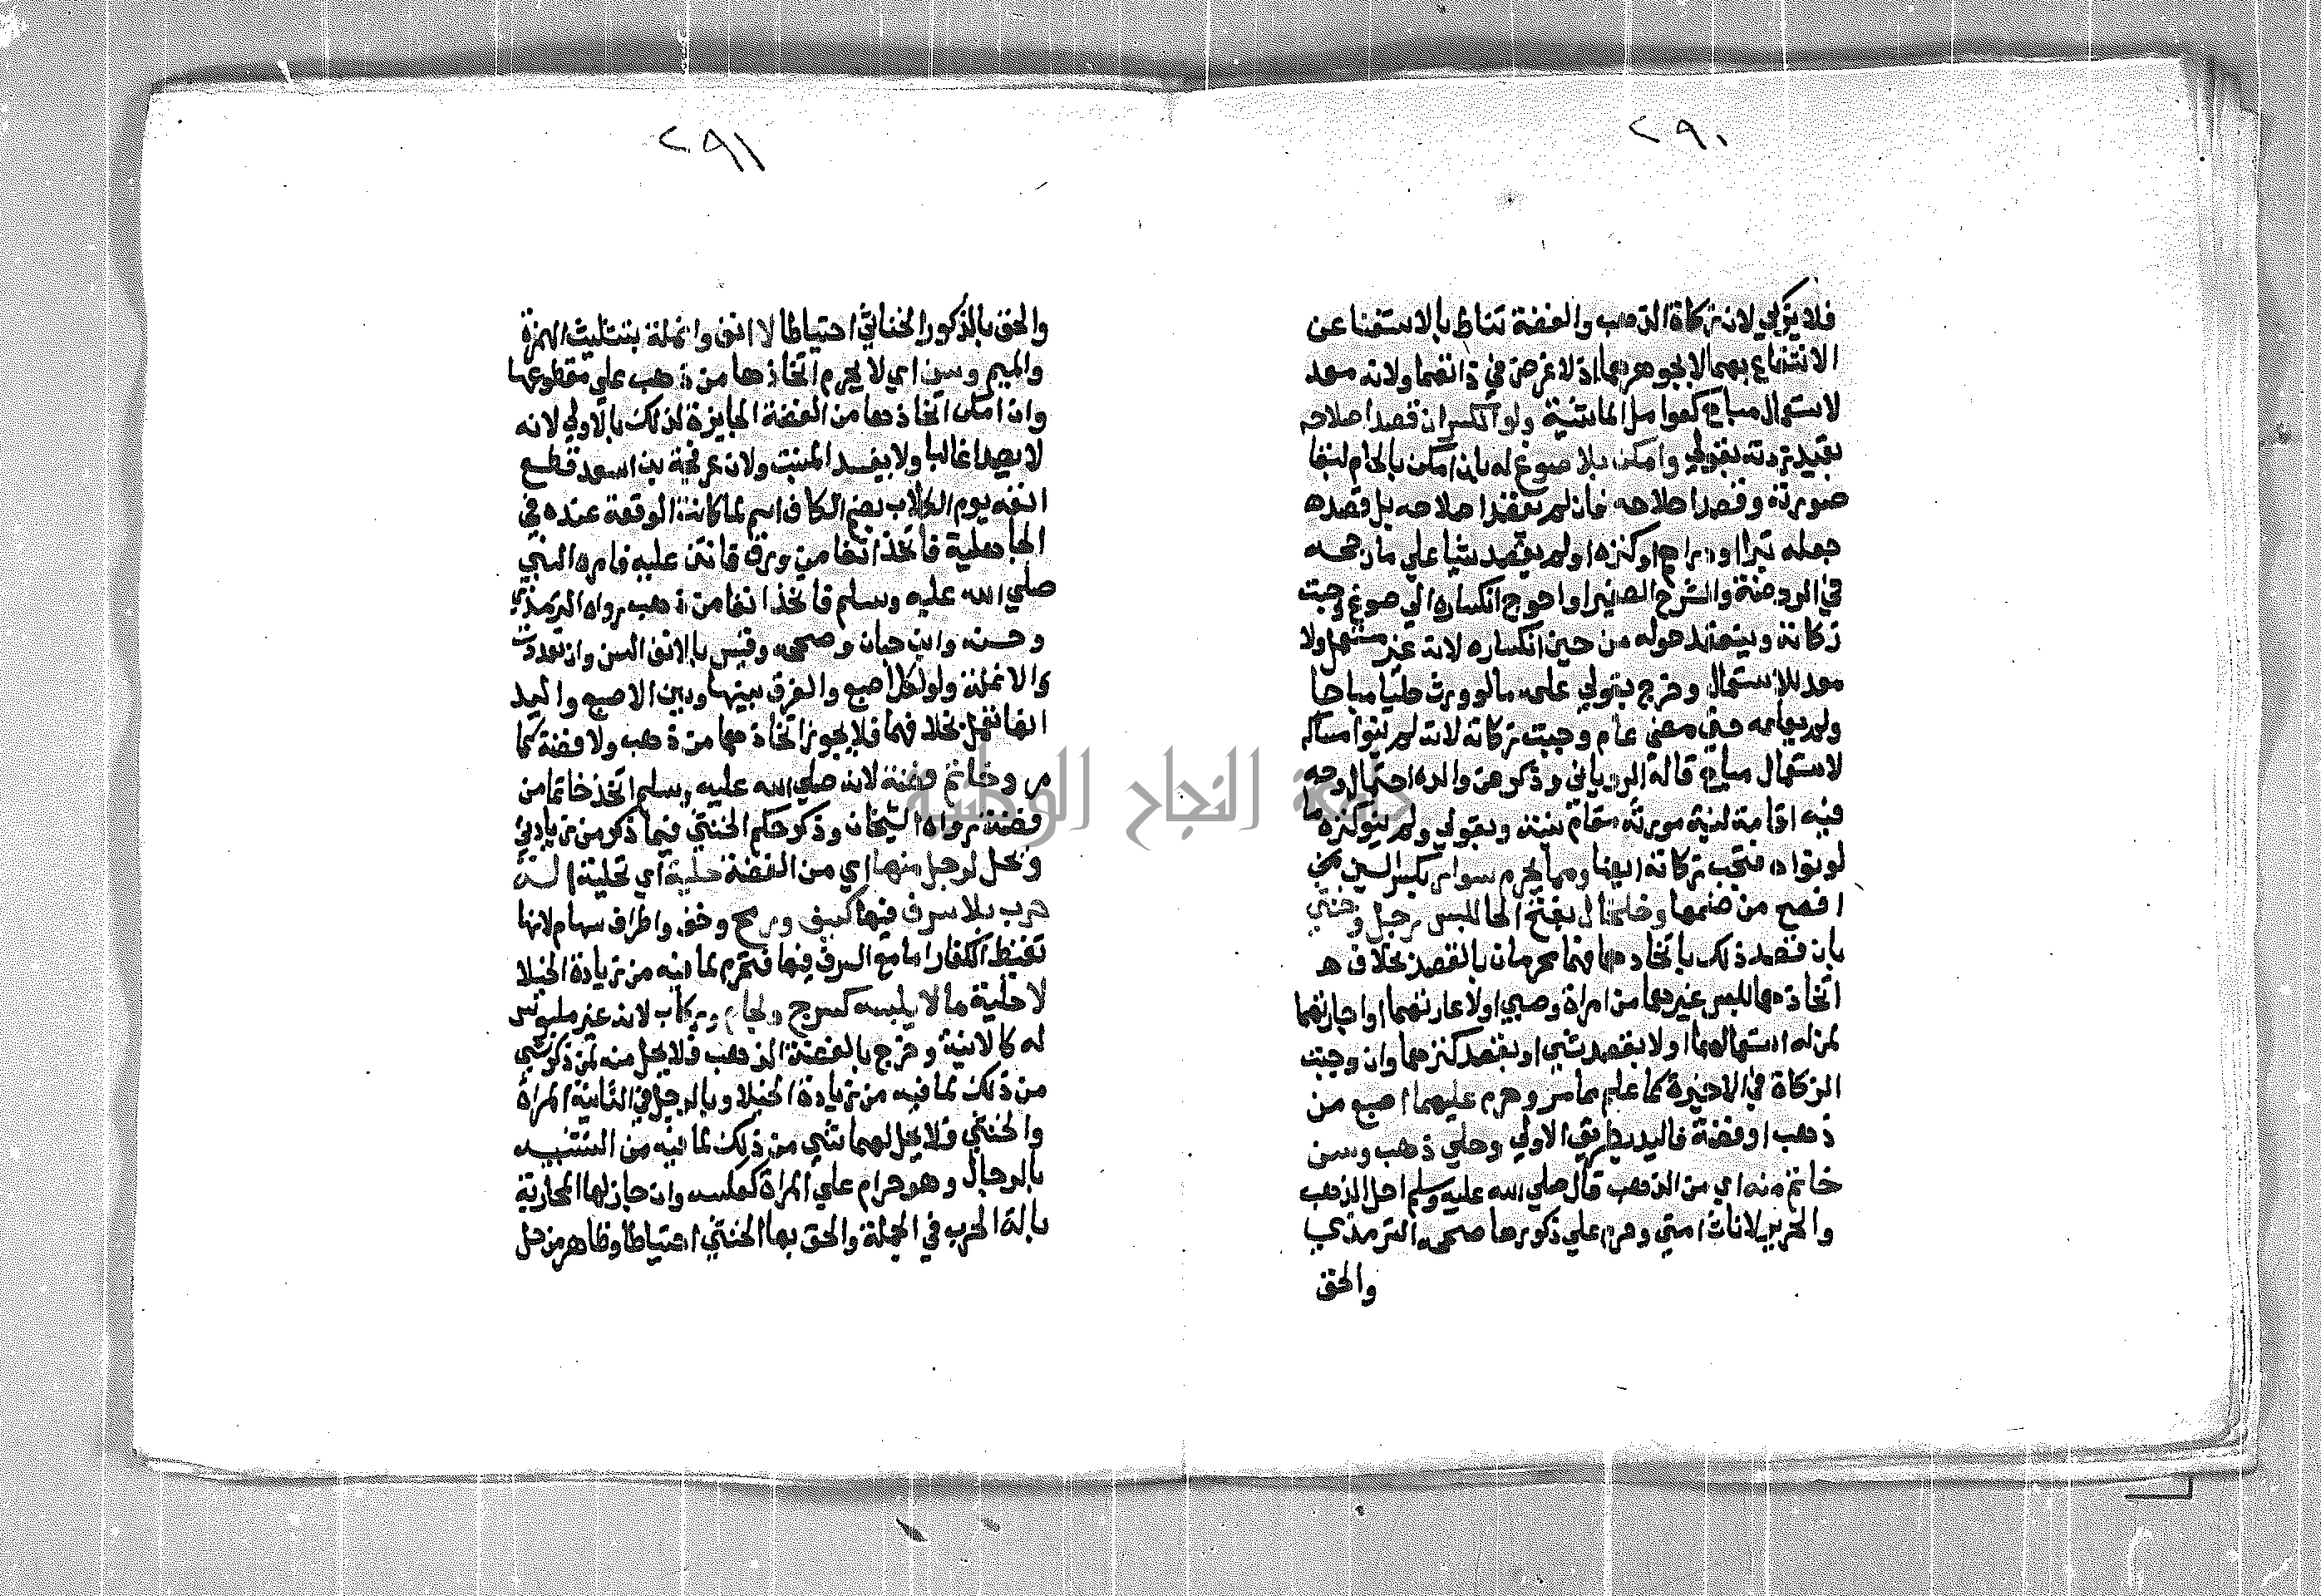 ٢٩٠
فلا يزكي لان زكاة الذهب والفضة تناط بالاستغنا عن
الانتفاع بهما لا بجوهرهما اذ لا غرض في ذاتهما ولانه معد
لاستعمال مباح كعوامل الماشية ولو انكسر ان قصد اصلاحه
بقيد زدته بقولي وامكن بلا صوغ له بان امكن بالحام لبقا
صورته وقصد اصلاحه فان لم يقصد اصلاحه بل قصد
جعله تبرا او دراهم او كنزه او لم يقصد شيا علي ما رجحه
في الروضة والشرح الصغير او احوج انكساره الي صوغ وجبت
زكاته وينعقد حوله من حين انكساره لانه غير مستعمل ولا
معد للاستعمال وخرج بقولي علمه ما لو ورث حليا مباحا
ولم يعلمه حتي مضي عام وجبت زكاته لانه لم ينو امساكه
لاستعمال مباح قاله الروياني وذكر عن والده احتمال وجه
فيه اقامة لنية مورثه مقام نيته وبقولي ولم ينو كنزه ما
لو نواه فتجب زكاته ايضا ومما يحرم سوار بكسر السين
افصح من ضمها وخلخال بفتح الخا للبس رجل وخنثي
بان قصد ذلك باتخادهما فهما محرمان بالقصد بخلاف
اتخاذهما للبس غيرهما من امراة وصبي او لاعارتهما او اجارتهما
لمن له استعمالهما او لا بقصد شي او بقصد كنزهما وان وجبت
الزكاة في الاخيرة كما علم مما مر وحرم عليهما اصبع من
ذهب او فضة فاليد بطريق الاولي وحلي ذهب وسن
خاتم منه اي من الذهب قال صلي الله عليه وسلم احل الذهب
والحرير لاناث امتي وحرم علي ذكورها صححه الترمذي
والحق
٢٩١
والحق بالذكور الخناثي احتياطا لا انف وانملة بتثليث الهمزة
والميم وسن اي لا يحرم اتخاذها من ذهب علي مقطوعها
وان امكن اتخاذها من الفضة الجايزة لذلك بالاولي لانه
لا يصدا غالبا ولا يفسد المنبت ولان عرفجة بن اسعد قطع
انفه يوم الكلاب بضم الكاف اسم لما كانت الوقعة عنده في
الجاهلية فاتخذ انفا من ورق فانتن عليه فامره النبي
صلي الله عليه وسلم فاتخذ انفا من ذهب رواه الترمذي
وحسنه وابن حبان وصححه وقيس بالانف السن وان تعددت
والانملة ولو لكل اصبع والفرق بينها وبين الاصبع واليد
انها تعمل بخلافهما فلا يجوز اتخاذهما من ذهب ولا فضة كما
مر وخاتم فضة لانه صلي الله عليه وسلم اتخذ خاتما من
فضة رواه الشيخان وذكر حكم الخنثي فيما ذكر من زيادتي
وتحل لرجل منها اي من الفضة حلية اي تحلية الة
حرب بلا سرف فيها كسيف ورمح وخف واطراف سهام لانها
تغيظ الكفار اما مع السرف فيها فتحرم لما فيه من زيادة الخيلا
لا حلية ما لا يلبسه كسرج ولجام وركاب لانه غير ملبوس
له كالانية وخرج بالفضة الذهب فلا يحل منه لمن ذكر شي
من ذلك لما فيه من زيادة الخيلا وبالرجل في الثانية المراة
والخنثي فلا يحل لهما شي من ذلك لما فيه من التشبيه
بالرجال وهو حرام علي المراة كعكسه وان جاز لها المحاربة
بالة الحرب في الجملة والحق بها الخنثي احتياطا وظاهر من حل
جامعة النجاح الوطنية